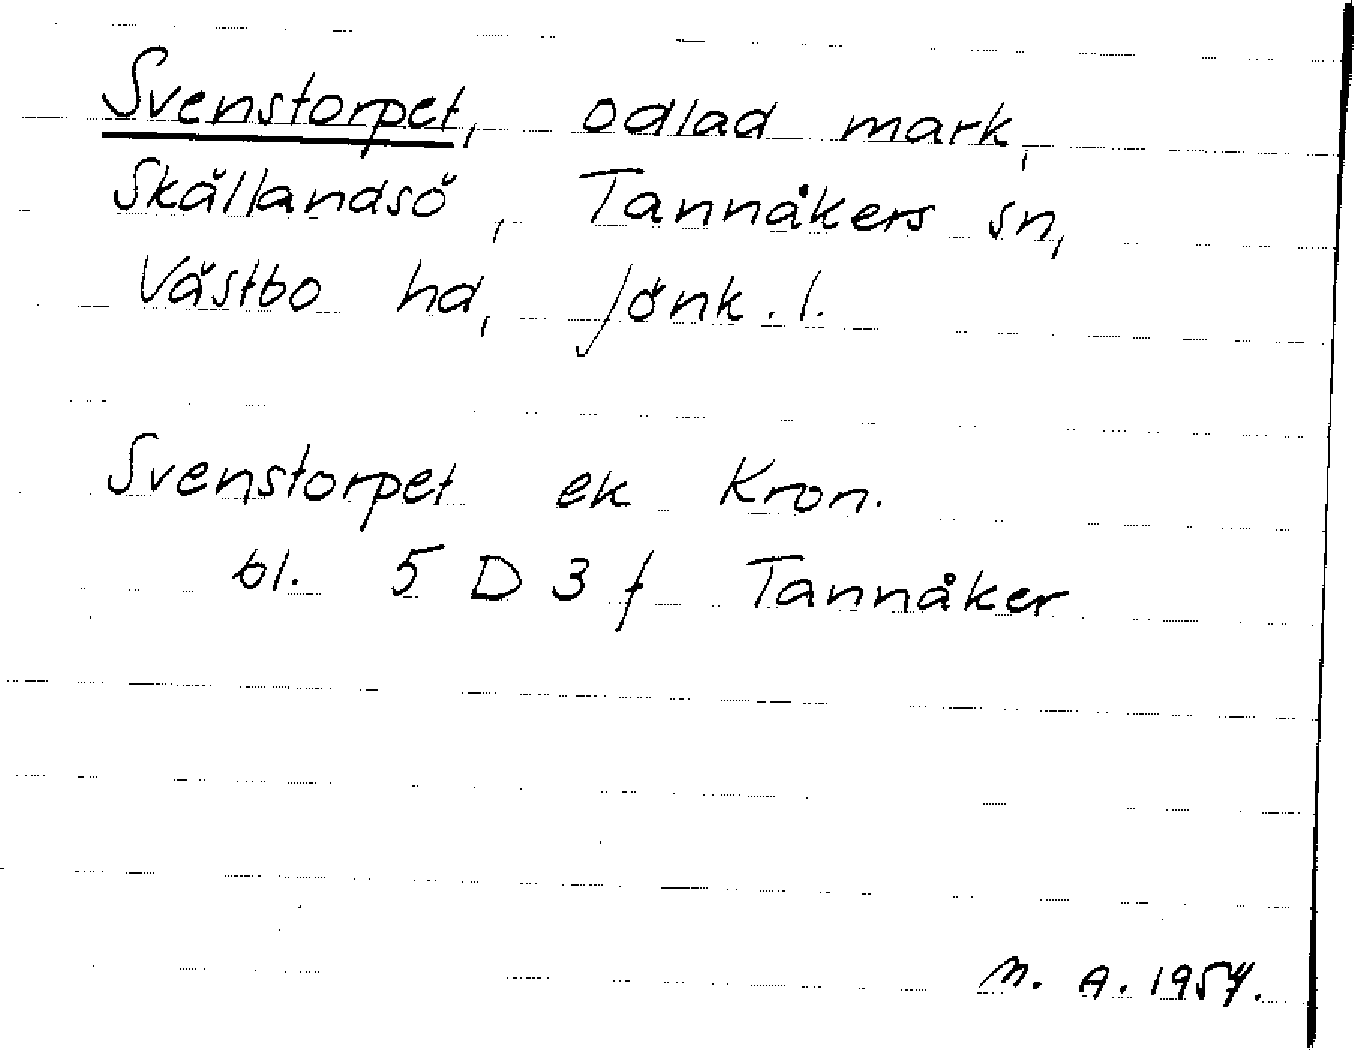 Svenstorpet, odlad mark,
Skällandsö, Tannåkers sn,
Västbo hd, Jönk. l.
Svenstorpet ek Kron.
bl. 5 D 3 f Tannåker
M. A. 1957.